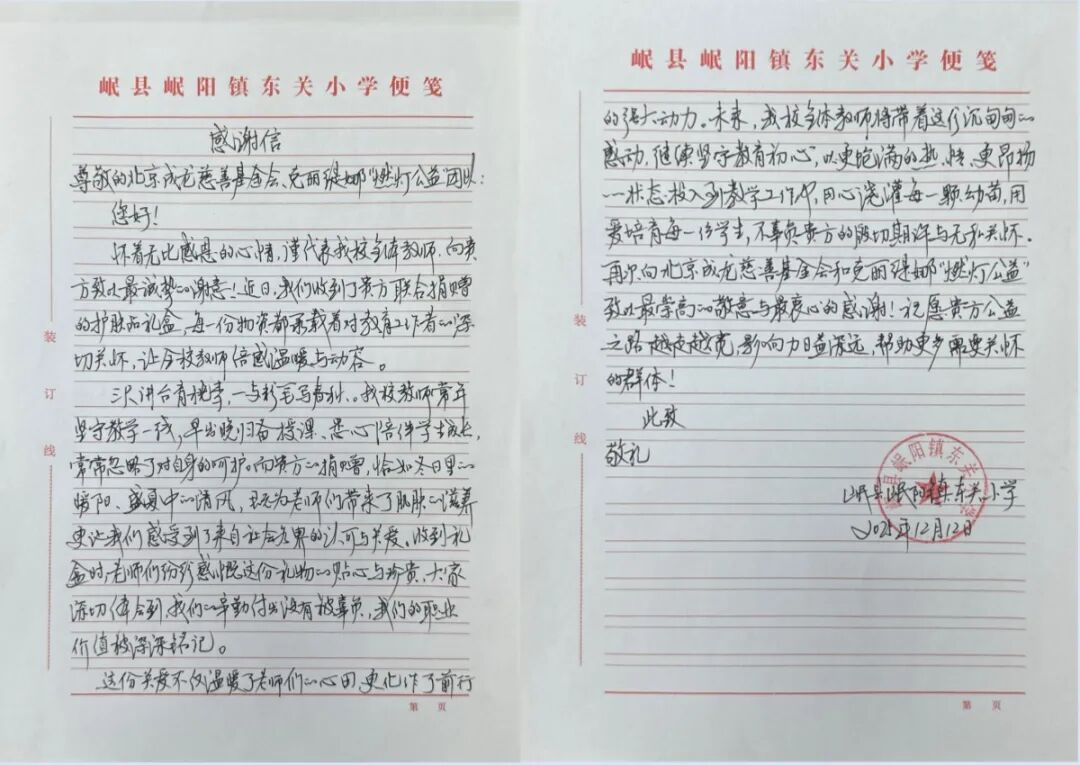 岷县岷阳镇东关小学便笺
感谢信
尊敬的北京成龙慈善基金会、克丽缇娜“燃灯公益”团队：
您好！
怀着无比感恩的心情，谨代表我校全体教师，向贵
方致以最诚挚的谢意！近日，我们收到了贵方联合捐赠
的护肤品礼盒，每一份物资都承载着对教育工作者的深
切关怀，让全校教师倍感温暖与动容。
三尺讲台育桃李，一支粉笔写春秋。我校教师常年
坚守教学一线，早出晚归备授课、悉心陪伴学生成长，
常常忽略了对自身的呵护。而贵方的捐赠，恰如冬日里的
暖阳、盛夏中的清风，既为老师们带来了肌肤的滋养
更让我们感受到了来自社会各界的认可与关爱。收到礼
盒时，老师们纷纷感慨这份礼物的贴心与珍贵，大家
深切体会到，我们的辛勤付出没有被辜负，我们的职业
价值被深深铭记。
这份关爱不仅温暖了老师们的心田，更化作了前行
第 页
装
订
线
岷县岷阳镇东关小学便笺
的强大动力。未来，我校全体教师将带着这份沉甸甸的
感动，继续坚守教育初心，以更饱满的热情、更昂扬
的状态投入到教学工作中，用心浇灌每一颗幼苗，用
爱培育每一位学生，不辜负贵方的殷切期许与无私关怀。
再次向北京成龙慈善基金会和克丽缇娜“燃灯公益”
致以最崇高的敬意与最衷心的感谢！祝愿贵方公益
之路越走越宽，影响力日益深远，帮助更多需要关怀
的群体！
此致
敬礼
岷县岷阳镇东关小学
2025年12月12日
岷县岷阳镇东关小学
第 页
装
订
线